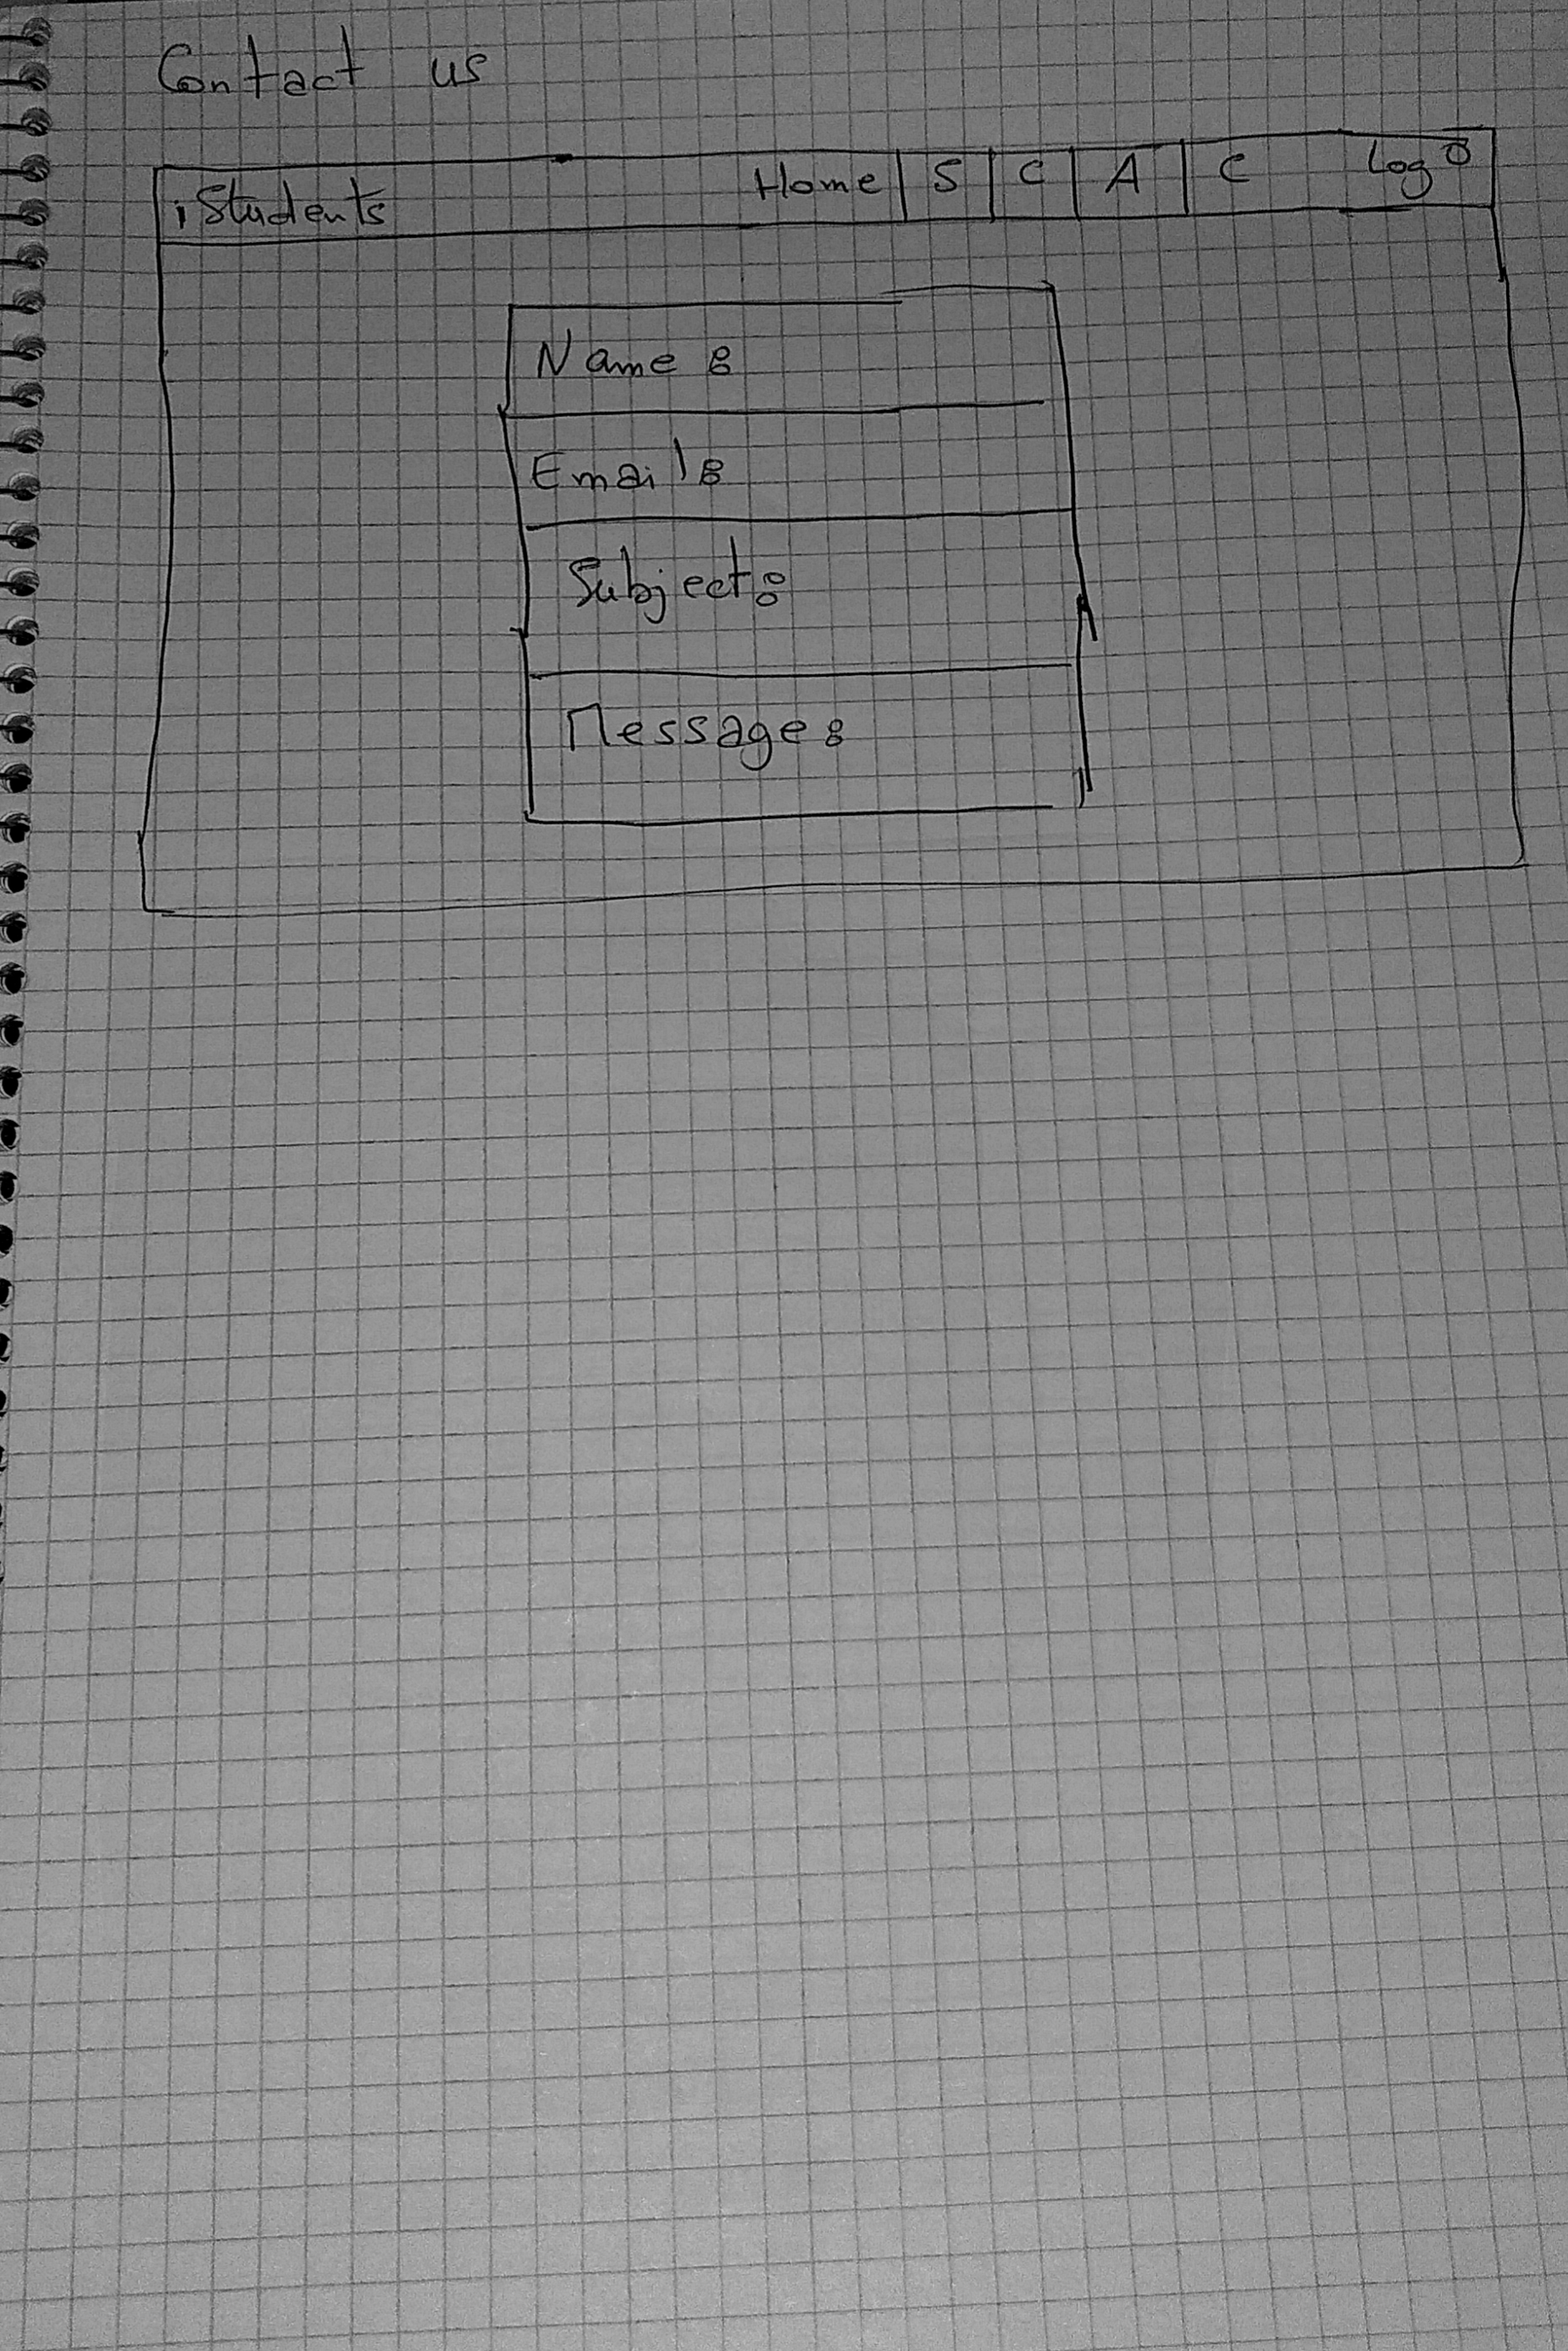 Contact us
iStudents Home | S | C | A | C Logo
Name :
Email :
Subject :
Message :